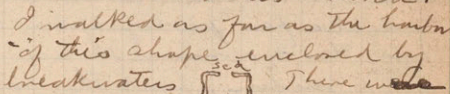 I walked as far as the harbor
of this shape enclosed by
sea
breakwaters There were